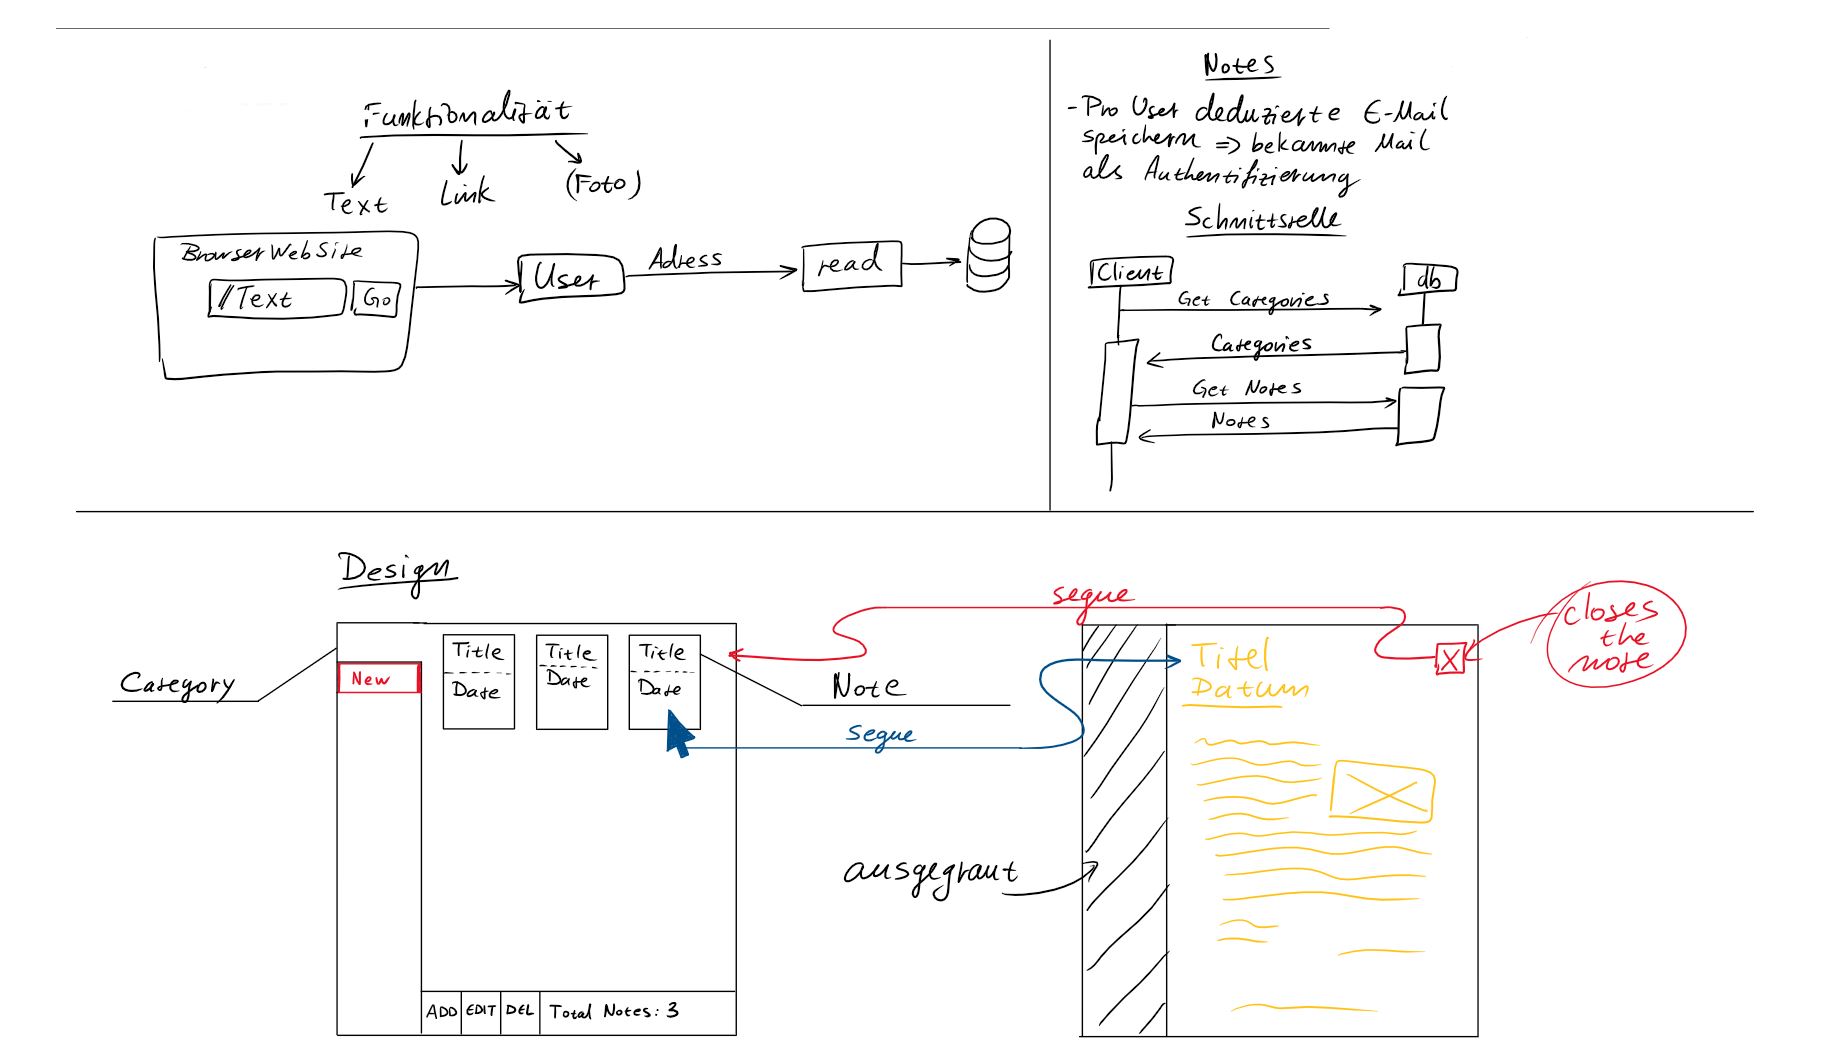 Funktionalität
Text
Link
(Foto)
Browser WebSite
//Text
Go
User
Adress
read
Notes
- Pro User deduzierte E-Mail
speichern => bekannte Mail
als Authentifizierung
Schnittstelle
Client
db
Get Categories
Categories
Get Notes
Notes
Design
Category
New
Title
Date
Title
Date
Title
Date
Note
segue
segue
ADD
EDIT
DEL
Total Notes: 3
ausgegraut
Titel
Datum
X
closes
the
note